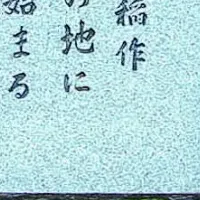 稲作
の地に
始まる